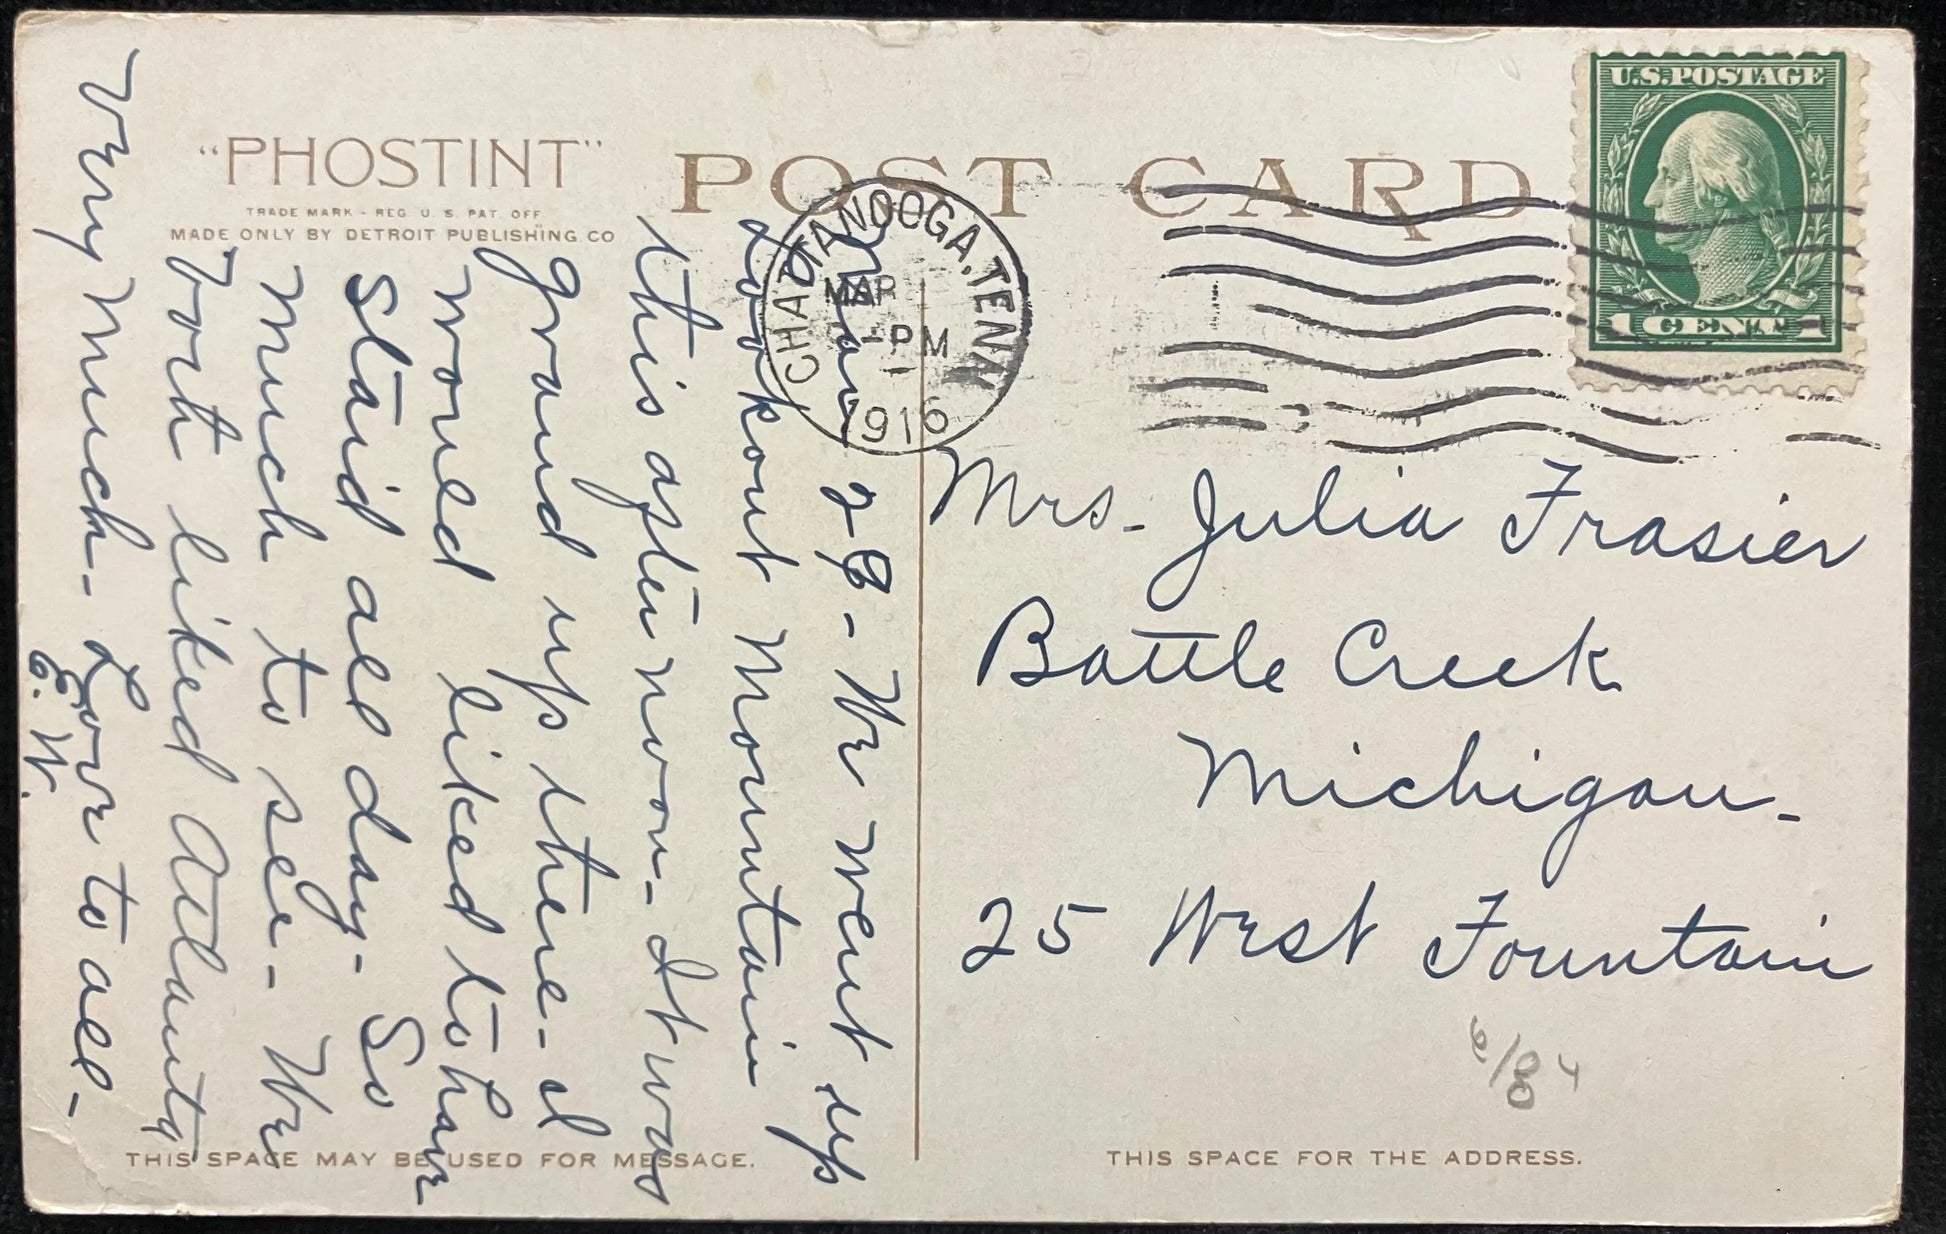 "PHOSTINT"
TRADE MARK - REG. U. S. PAT. OFF.
MADE ONLY BY DETROIT PUBLISHING CO
POST CARD
CHATTANOOGA, TENN
MAR
-PM
1916
U.S. POSTAGE
1 CENT 1
Mar 29 - We went up
Lookout Mountain
this afternoon - It was
grand up there - I
would liked to have
staid all day - So
much to see - We
both liked Atlanta
very much - Love to all -
E. W.
Mrs. Julia Frasier
Battle Creek
Michigan -
25 West Fountain
THIS SPACE MAY BE USED FOR MESSAGE.
THIS SPACE FOR THE ADDRESS.